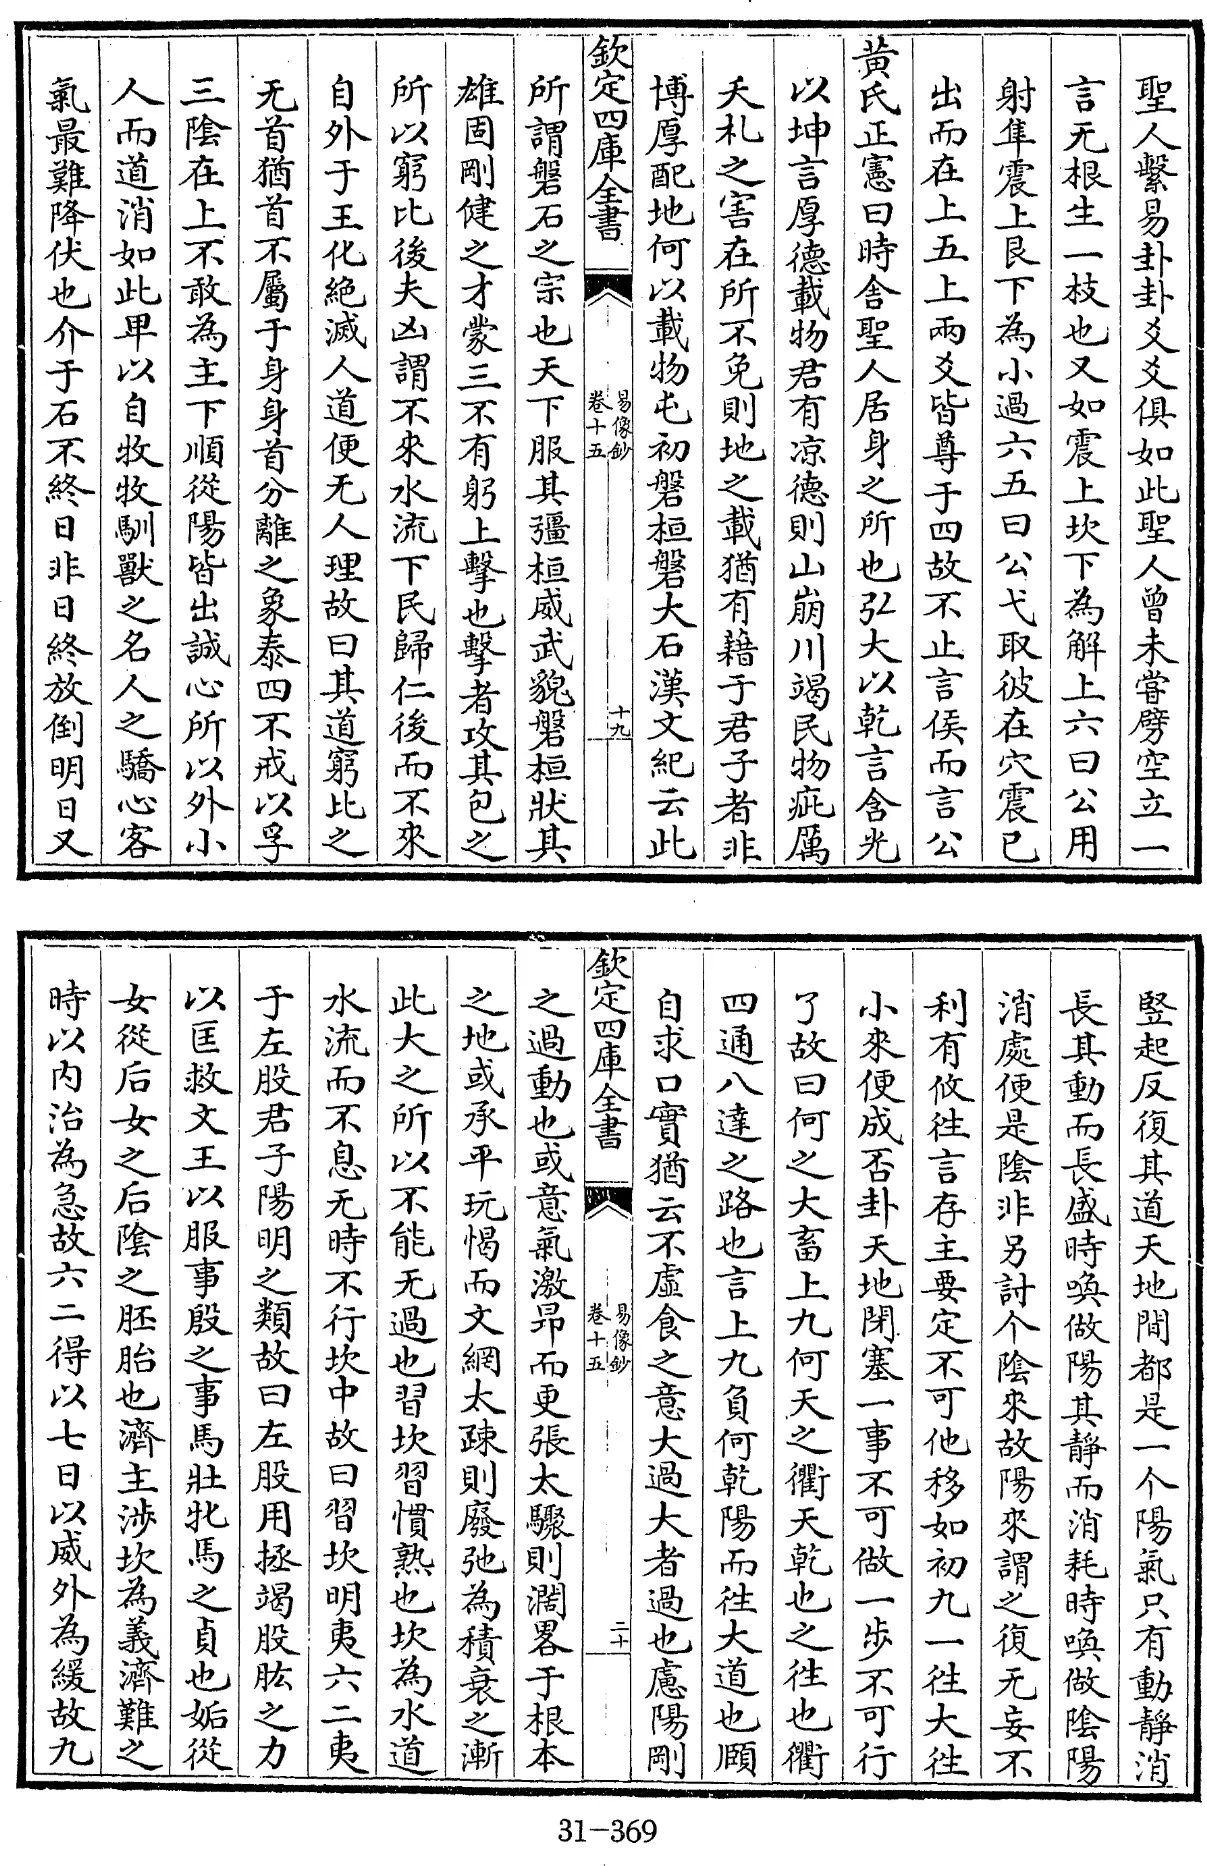 聖人繫易卦卦爻爻俱如此聖人曾未甞劈空立一
言无根生一枝也又如震上坎下為解上六曰公用
射隼震上艮下為小過六五曰公弋取彼在穴震已
出而在上五上兩爻皆尊于四故不止言侯而言公
黃氏正憲曰時舍聖人居身之所也弘大以乾言含光
以坤言厚德載物君有凉德則山崩川竭民物疵厲
夭札之害在所不免則地之載猶有藉于君子者非
博厚配地何以載物屯初磐桓磐大石漢文紀云此
欽定四庫全書
易像鈔
卷十五
十九
所謂磐石之宗也天下服其彊桓威武貌磐桓狀其
雄固剛健之才蒙三不有躬上擊也擊者攻其包之
所以窮比後夫凶謂不來水流下民歸仁後而不來
自外于王化絶滅人道便无人理故曰其道窮比之
无首猶首不屬于身身首分離之象泰四不戒以孚
三陰在上不敢為主下順從陽皆出誠心所以外小
人而道消如此卑以自牧牧馴獸之名人之驕心客
氣最難降伏也介于石不終日非日終放倒明日又
竪起反復其道天地間都是一个陽氣只有動靜消
長其動而長盛時喚做陽其靜而消耗時喚做陰陽
消處便是陰非另討个陰來故陽來謂之復无妄不
利有攸往言存主要定不可他移如初九一往大往
小來便成否卦天地閉塞一事不可做一步不可行
了故曰何之大畜上九何天之衢天乾也之往也衢
四通八達之路也言上九負何乾陽而往大道也頤
自求口實猶云不虛食之意大過大者過也慮陽剛
欽定四庫全書
易像鈔
卷十五
二十
之過動也或意氣激昂而更張太驟則濶畧于根本
之地或承平玩愒而文網太疎則廢弛為積衰之漸
此大之所以不能无過也習坎習慣熟也坎為水道
水流而不息无時不行坎中故曰習坎明夷六二夷
于左股君子陽明之類故曰左股用拯竭股肱之力
以匡救文王以服事殷之事馬壯牝馬之貞也姤從
女從后女之后陰之胚胎也濟主涉坎為義濟難之
時以内治為急故六二得以七日以威外為緩故九
31-369